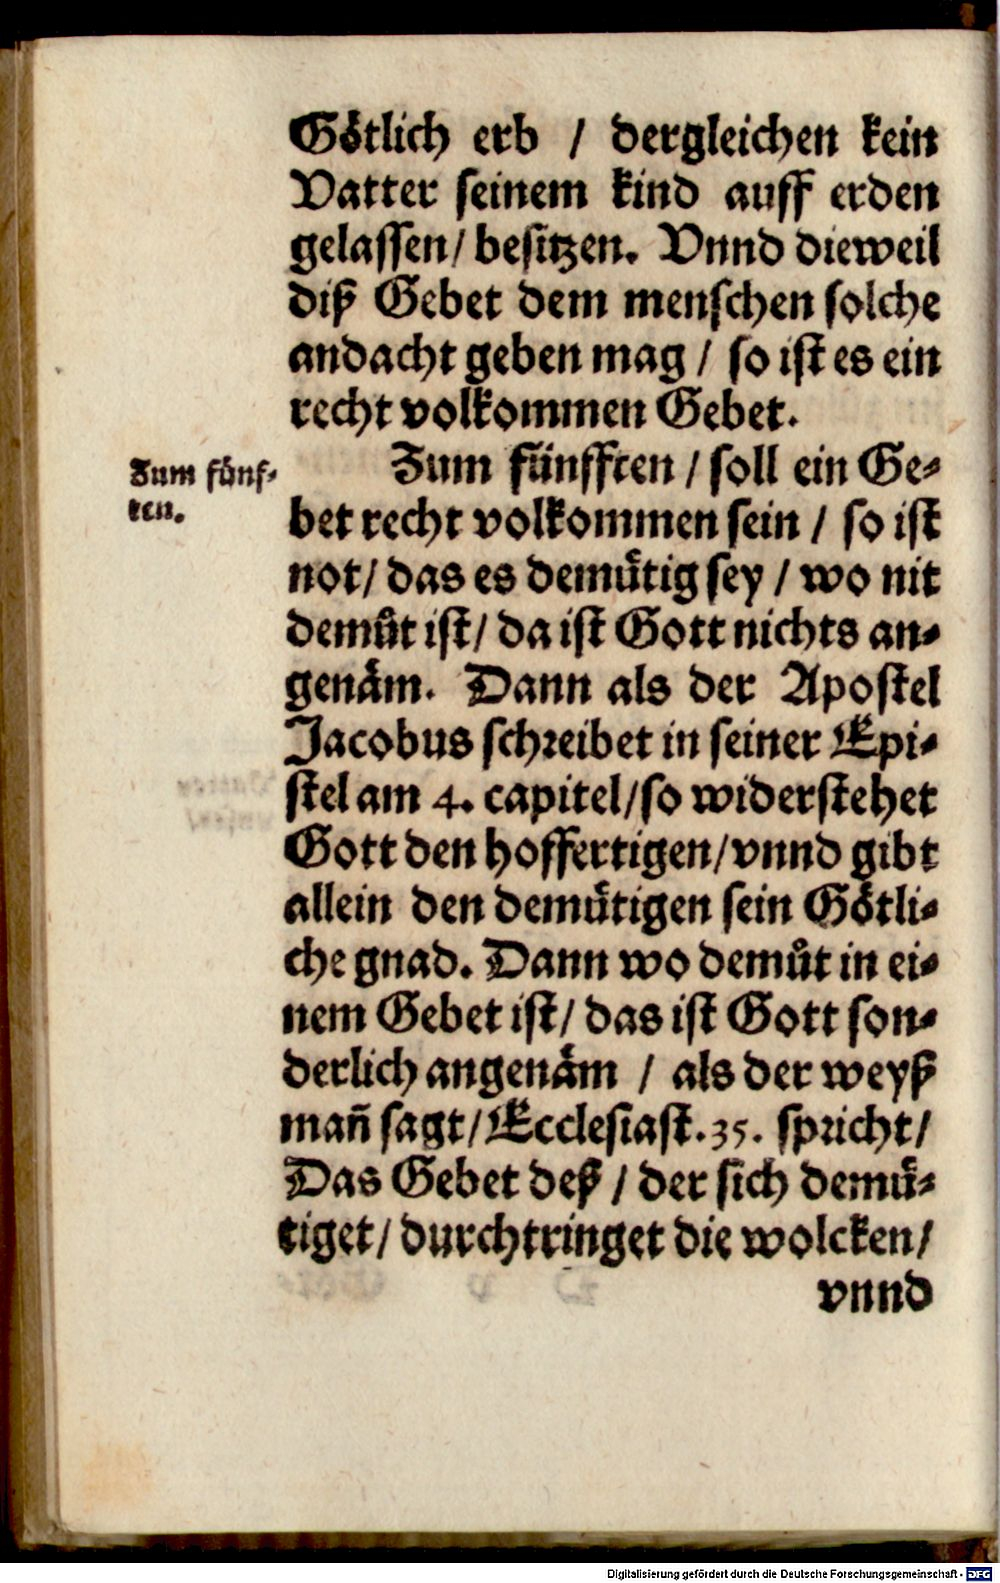 Goͤtlich erb / dergleichen kein
Vatter seinem kind auff erden
gelassen / besitzen. Vnnd dieweil
diß Gebet dem menschen solche
andacht geben mag / so ist es ein
recht volkommen Gebet.
Zum fuͤnf⸗
ten.
Zum fuͤnfften / soll ein Ge⸗
bet recht volkommen sein / so ist
not / das es demuͤtig sey / wo nit
demuͤt ist / da ist Gott nichts an⸗
genaͤm. Dann als der Apostel
Jacobus schreibet in seiner Epi⸗
stel am 4. capitel / so widerstehet
Gott den hoffertigen / vnnd gibt
allein den demuͤtigen sein Goͤtli⸗
che gnad. Dann wo demuͤt in ei⸗
nem Gebet ist / das ist Gott son⸗
derlich angenaͤm / als der weyß
mañ sagt / Ecclesiast. 35. spricht /
Das Gebet deß / der sich demuͤ⸗
tiget / durchtringet die wolcken /
vnnd
Digitalisierung gefördert durch die Deutsche Forschungsgemeinschaft - DFG